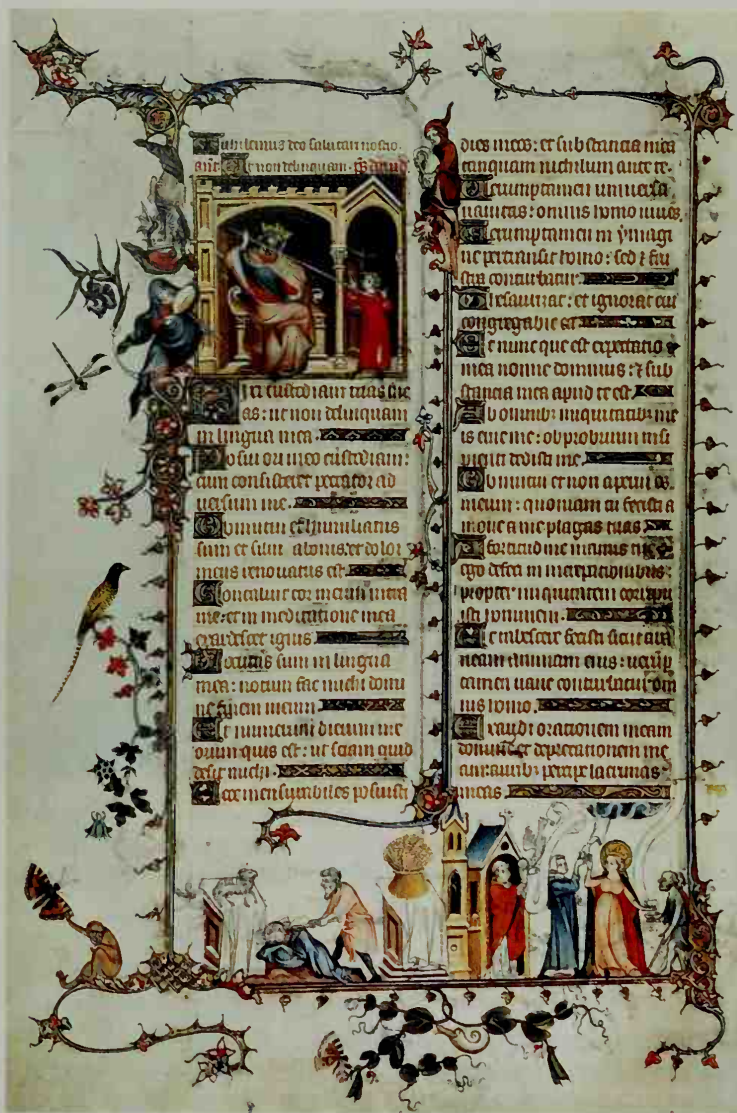 Iubilemus deo salutari nostro.
ant. Ut non delinquam. ps dauid
Dixi custodiam uias me
as: ut non delinquam
in lingua mea.
Posui ori meo custodiam:
cum consisteret peccator ad
uersum me.
Obmutui et humiliatus
sum et silui a bonis: et dolor
meus renouatus est.
Concaluit cor meum intra
me: et in meditatione mea
exardescet ignis.
Locutus sum in lingua
mea: notum fac michi domi
ne finem meum.
Et numerum dierum me
orum quis est: ut sciam quid
desit michi.
Ecce mensurabiles posuisti
dies meos: et substancia mea
tanquam nichilum ante te.
Uerumptamen uniuersa
uanitas: omnis homo uiuens.
Uerumptamen in ymagi
ne pertransit homo: sed et frus
tra conturbatur.
Thesaurizat: et ignorat cui
congregabit ea.
Et nunc que est expectatio
mea nonne dominus: et sub
stancia mea apud te est.
Ab omnibus iniquitatibus me
is erue me: obprobrium insi
pienti dedisti me.
Obmutui et non aperui os
meum: quoniam tu fecisti a
moue a me plagas tuas.
A fortitudine manus tue
ego defeci in increpationibus:
propter iniquitatem corripu
isti hominem.
Et tabescere fecisti sicut ara
neam animam eius: uerump
tamen uane conturbatur om
nis homo.
Exaudi orationem meam
domine et deprecationem me
am: auribus percipe lacrimas
meas